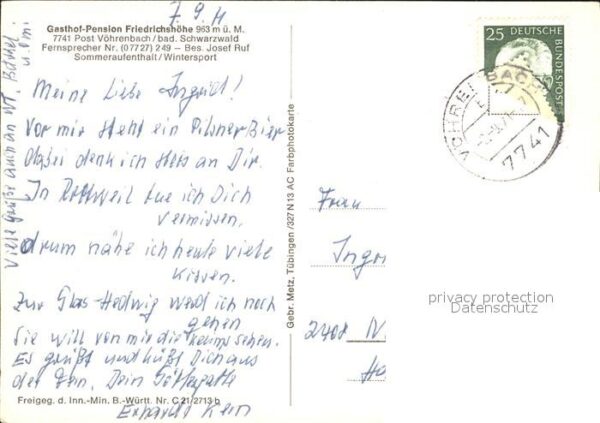 7.9.71
Gasthof-Pension Friedrichshöhe 963 m ü. M.
7741 Post Vöhrenbach / bad. Schwarzwald
Fernsprecher Nr. (07727) 249 – Bes. Josef Ruf
Sommeraufenthalt / Wintersport
Meine Liebe Ingrid!
Vor mir steht ein Pilsner Bier
dabei denk ich stets an Dir.
In Rottweil tue ich Dich
vermissen,
drum nähe ich heute viele
Kissen.
Zur Glas-Hedwig werd ich noch
gehen
Sie will von mir die
Es grüßt und küßt Dich aus
der Fern, Dein
Erhardt Kern
Viele Grüße auch an
u. Omi
Freigeg. d. Inn.-Min. B.-Württ. Nr. C 21/2713 b
Gebr. Metz, Tübingen /327 N 13 AC Farbphotokarte
25 DEUTSCHE
BUNDESPOST
VÖHRENBACH
7741
Frau
Ingr
privacy protection
Datenschutz